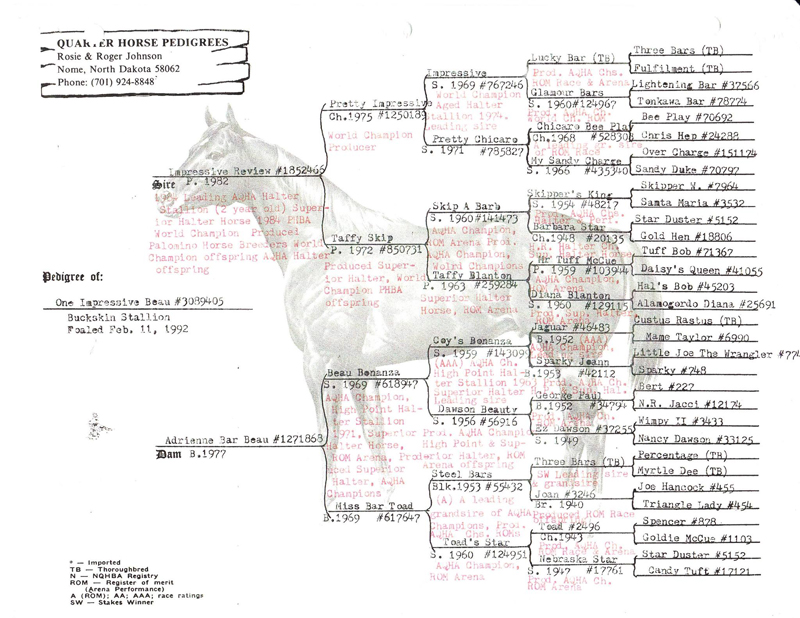 QUARTER HORSE PEDIGREES
Rosie & Roger Johnson
Nome, North Dakota 58062
Phone: (701) 924-8848
Pedigree of:
One Impressive Beau #3089405
Buckskin Stallion
Foaled Feb. 11, 1992
Impressive Review #1852466
Sire P. 1982
Leading AQHA Halter
Stallion (2 year old) Superior
Halter Horse 1984 PHBA
World Champion Produced
Palomino Horse Breeders World
Champion offspring AQHA Halter
offspring
Adrienne Bar Beau #1271868
Dam B.1977
Pretty Impressive
Ch.1975 #1250189
World Champion
Producer
Taffy Skip
P. 1972 #850731
Produced Super-
ior Halter, World
Champion PHBA
offspring
Beau Bonanza
S. 1969 #618947
AQHA Champion,
High Point Hal-
ter Stallion
1971, Superior
Halter Horse,
ROM Arena, Pro
Superior
Halter, AQHA
Champions
Miss Bar Toad
B.1969 #617647
Impressive
S. 1969 #767246
World Champion
Aged Halter
Stallion 1974
Leading sire
Pretty Chicaro
S. 1971 #785827
Skip A Barb
S. 1960 #141473
AQHA Champion,
ROM Arena Prod.
AQHA Champion,
World Champions
Taffy Blanton
P. 1963 #259284
Superior Halter
Horse, ROM Arena
Coy's Bonanza
S. 1959 #143099
(AAA) AQHA Ch.
High Point Hal-
ter Stallion
Superior Halter
Leading sire
Dawson Beauty
S. 1956 #56916
Prod. AQHA Champion
High Point & Sup-
erior Halter, ROM
Arena offspring
Steel Bars
Blk.1953 #55432
(A) A leading
grandsire of AQHA
Champions, Prod.
AQHA Chs. ROMs
Toad's Star
S. 1960 #124951
AQHA Champion,
ROM Arena
Lucky Bar (TB)
Prod. AQHA Chs.
ROM Race & Arena
Glamour Bars
S. 1960 #124967
Chicaro Bee Play
Ch.1968 #528308
My Sandy Charge
S. 1966 #435340
Skipper's King
S. 1954 #48217
Barbara Star
Ch.1948 #20135
Mr Tuff McCue
P. 1959 #103944
Diana Blanton
S. 1960 #129115
Jaguar #46483
B.1952 (AAA)
Sparky Joann
B.1953 #42112
George Paul
B.1952 #34794
Ez Dawson #37255
S. 1949
Three Bars (TB)
SW Leading sire
& grandsire
Joan #3246
Br. 1940
Produced ROM Race
Toad #2496
Ch.1943
Prod. AQHA Ch.
ROM Race & Arena
Nebraska Star
S. 1947 #17761
Prod. AQHA Ch.
ROM Arena
Three Bars (TB)
Fulfilment (TB)
Lightening Bar #37566
Tonkawa Bar #78774
Bee Play #70692
Chris Hep #24288
Over Charge #151174
Sandy Duke #70797
Skipper W. #7964
Santa Maria #3532
Star Duster #5152
Gold Hen #18806
Tuff Bob #71367
Daisy's Queen #41055
Hal's Bob #45203
Alamogordo Diana #25691
Custus Rastus (TB)
Mame Taylor #6990
Little Joe The Wrangler #774
Sparky #748
Bert #227
N.R. Jacci #12174
Wimpy II #3433
Nancy Dawson #33125
Percentage (TB)
Myrtle Dee (TB)
Joe Hancock #455
Triangle Lady #454
Spencer #878
Goldie McCue #1103
Star Duster #5152
Candy Tuft #17121
* — Imported
TB — Thoroughbred
N — NQHBA Registry
ROM — Register of merit
(Arena Performance)
A (ROM); AA; AAA; race ratings
SW — Stakes Winner